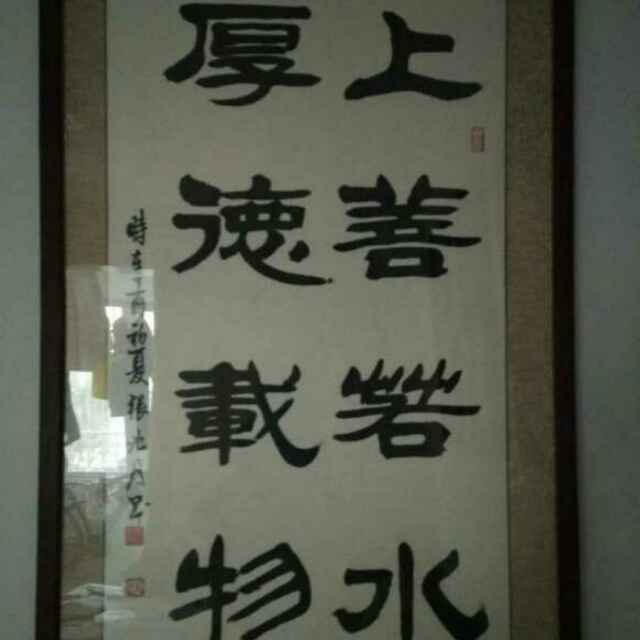 上善若水
厚德載物
時在丁酉初夏張